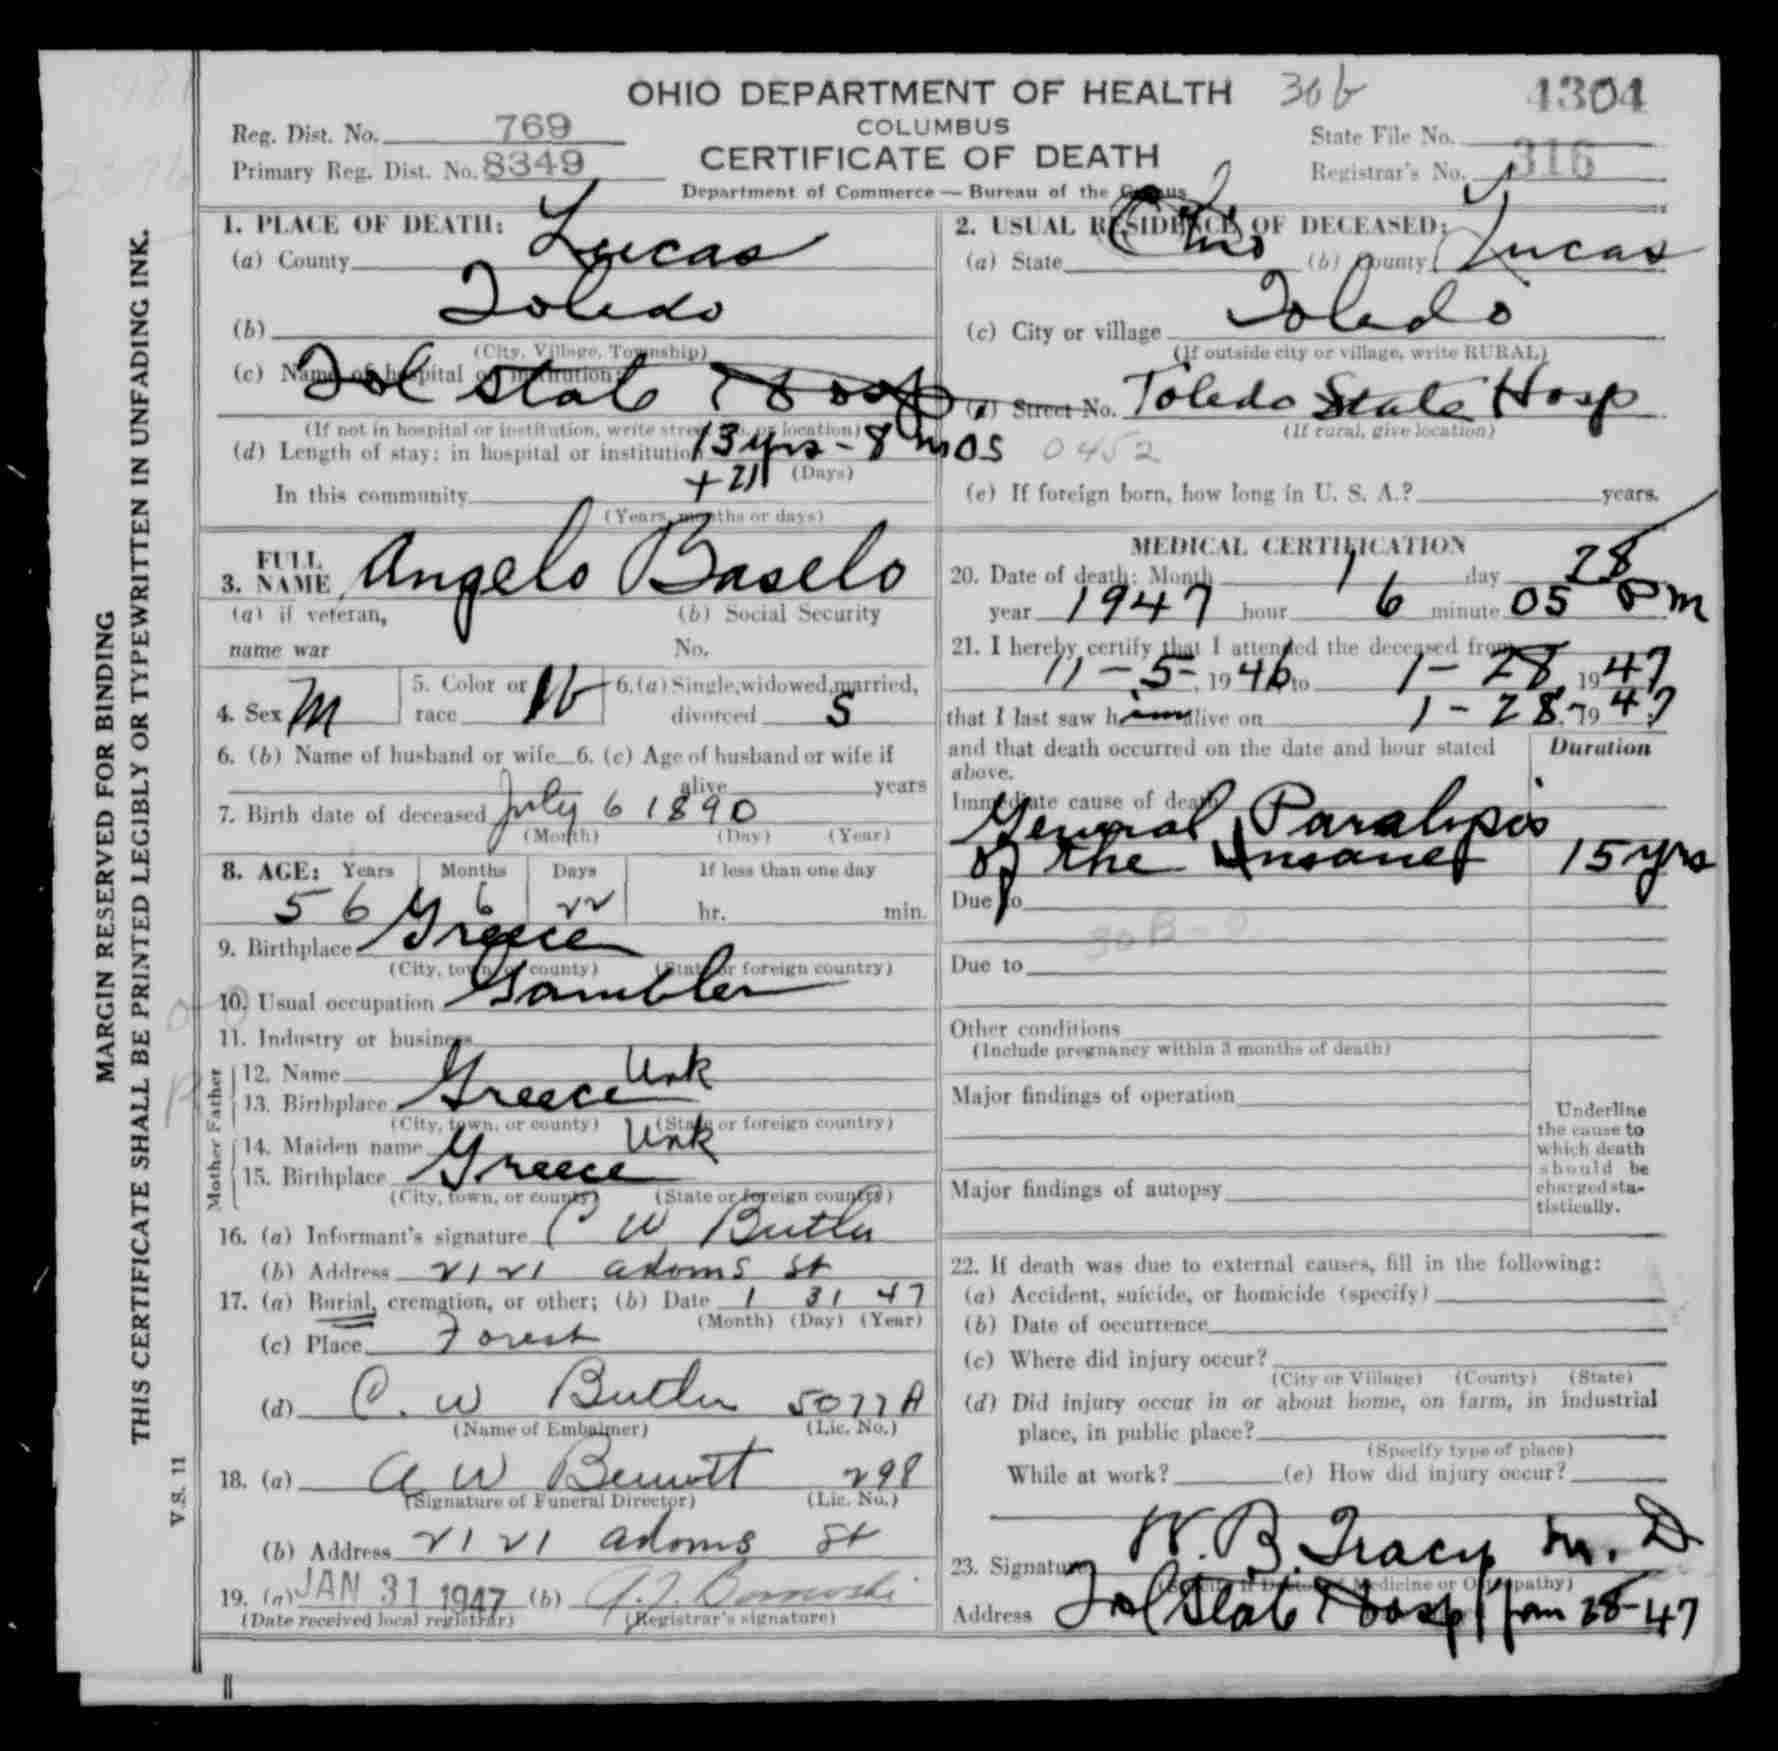 OHIO DEPARTMENT OF HEALTH 30b 4304
COLUMBUS
Reg. Dist. No. 769
State File No.
CERTIFICATE OF DEATH
Primary Reg. Dist. No. 8349
Registrar's No. 316
Department of Commerce — Bureau of the Census
1. PLACE OF DEATH:
(a) County Lucas
(b) Toledo
(City, Village, Township)
(c) Name of hospital or institution:
Tol State Hosp
(If not in hospital or institution, write street no. or location)
(d) Length of stay: in hospital or institution 13 yrs - 8 mos
+ 21 (Days)
In this community
(Years, months or days)
2. USUAL RESIDENCE OF DECEASED:
(a) State Ohio (b) County Lucas
(c) City or village Toledo
(If outside city or village, write RURAL)
(d) Street No. Toledo State Hosp
(If rural, give location)
0452
(e) If foreign born, how long in U. S. A.? years.
3. FULL NAME Angelo Baselo
(a) if veteran, (b) Social Security
name war No.
4. Sex M 5. Color or race W 6. (a) Single, widowed, married, divorced S
6. (b) Name of husband or wife 6. (c) Age of husband or wife if
alive years
7. Birth date of deceased July 6 1890
(Month) (Day) (Year)
8. AGE: Years Months Days If less than one day
56 6 22 hr. min.
9. Birthplace Greece
(City, town, or county) (State or foreign country)
10. Usual occupation Gambler
11. Industry or business
Father
12. Name Unk
13. Birthplace Greece
(City, town, or county) (State or foreign country)
Mother
14. Maiden name Unk
15. Birthplace Greece
(City, town, or county) (State or foreign country)
16. (a) Informant's signature C W Butler
(b) Address 2121 Adams St
17. (a) Burial, cremation, or other; (b) Date 1 31 47
(Month) (Day) (Year)
(c) Place Forest
(d) C. W Butler 5077A
(Name of Embalmer) (Lic. No.)
18. (a) A W Bennett 298
(Signature of Funeral Director) (Lic. No.)
(b) Address 2121 Adams St
19. (a) JAN 31 1947 (b)
(Date received local registrar) (Registrar's signature)
MEDICAL CERTIFICATION
20. Date of death: Month 1 day 28
year 1947 hour 6 minute 05 Pm
21. I hereby certify that I attended the deceased from
11-5-, 1946 to 1-28, 1947
that I last saw him alive on 1-28, 1947
and that death occurred on the date and hour stated above.
Duration
Immediate cause of death
General Paralysis
of the Insane 15 yrs
Due to
30B-0
Due to
Other conditions
(Include pregnancy within 3 months of death)
Major findings of operation
Major findings of autopsy
Underline
the cause to
which death
should be
charged sta-
tistically.
22. If death was due to external causes, fill in the following:
(a) Accident, suicide, or homicide (specify)
(b) Date of occurrence
(c) Where did injury occur?
(City or Village) (County) (State)
(d) Did injury occur in or about home, on farm, in industrial
place, in public place?
(Specify type of place)
While at work? (e) How did injury occur?
23. Signature W. B. Tracy M. D
(Specify if Doctor of Medicine or Osteopathy)
Address Tol State Hosp Jan 28-47
MARGIN RESERVED FOR BINDING
THIS CERTIFICATE SHALL BE PRINTED LEGIBLY OR TYPEWRITTEN IN UNFADING INK.
V.S. 11